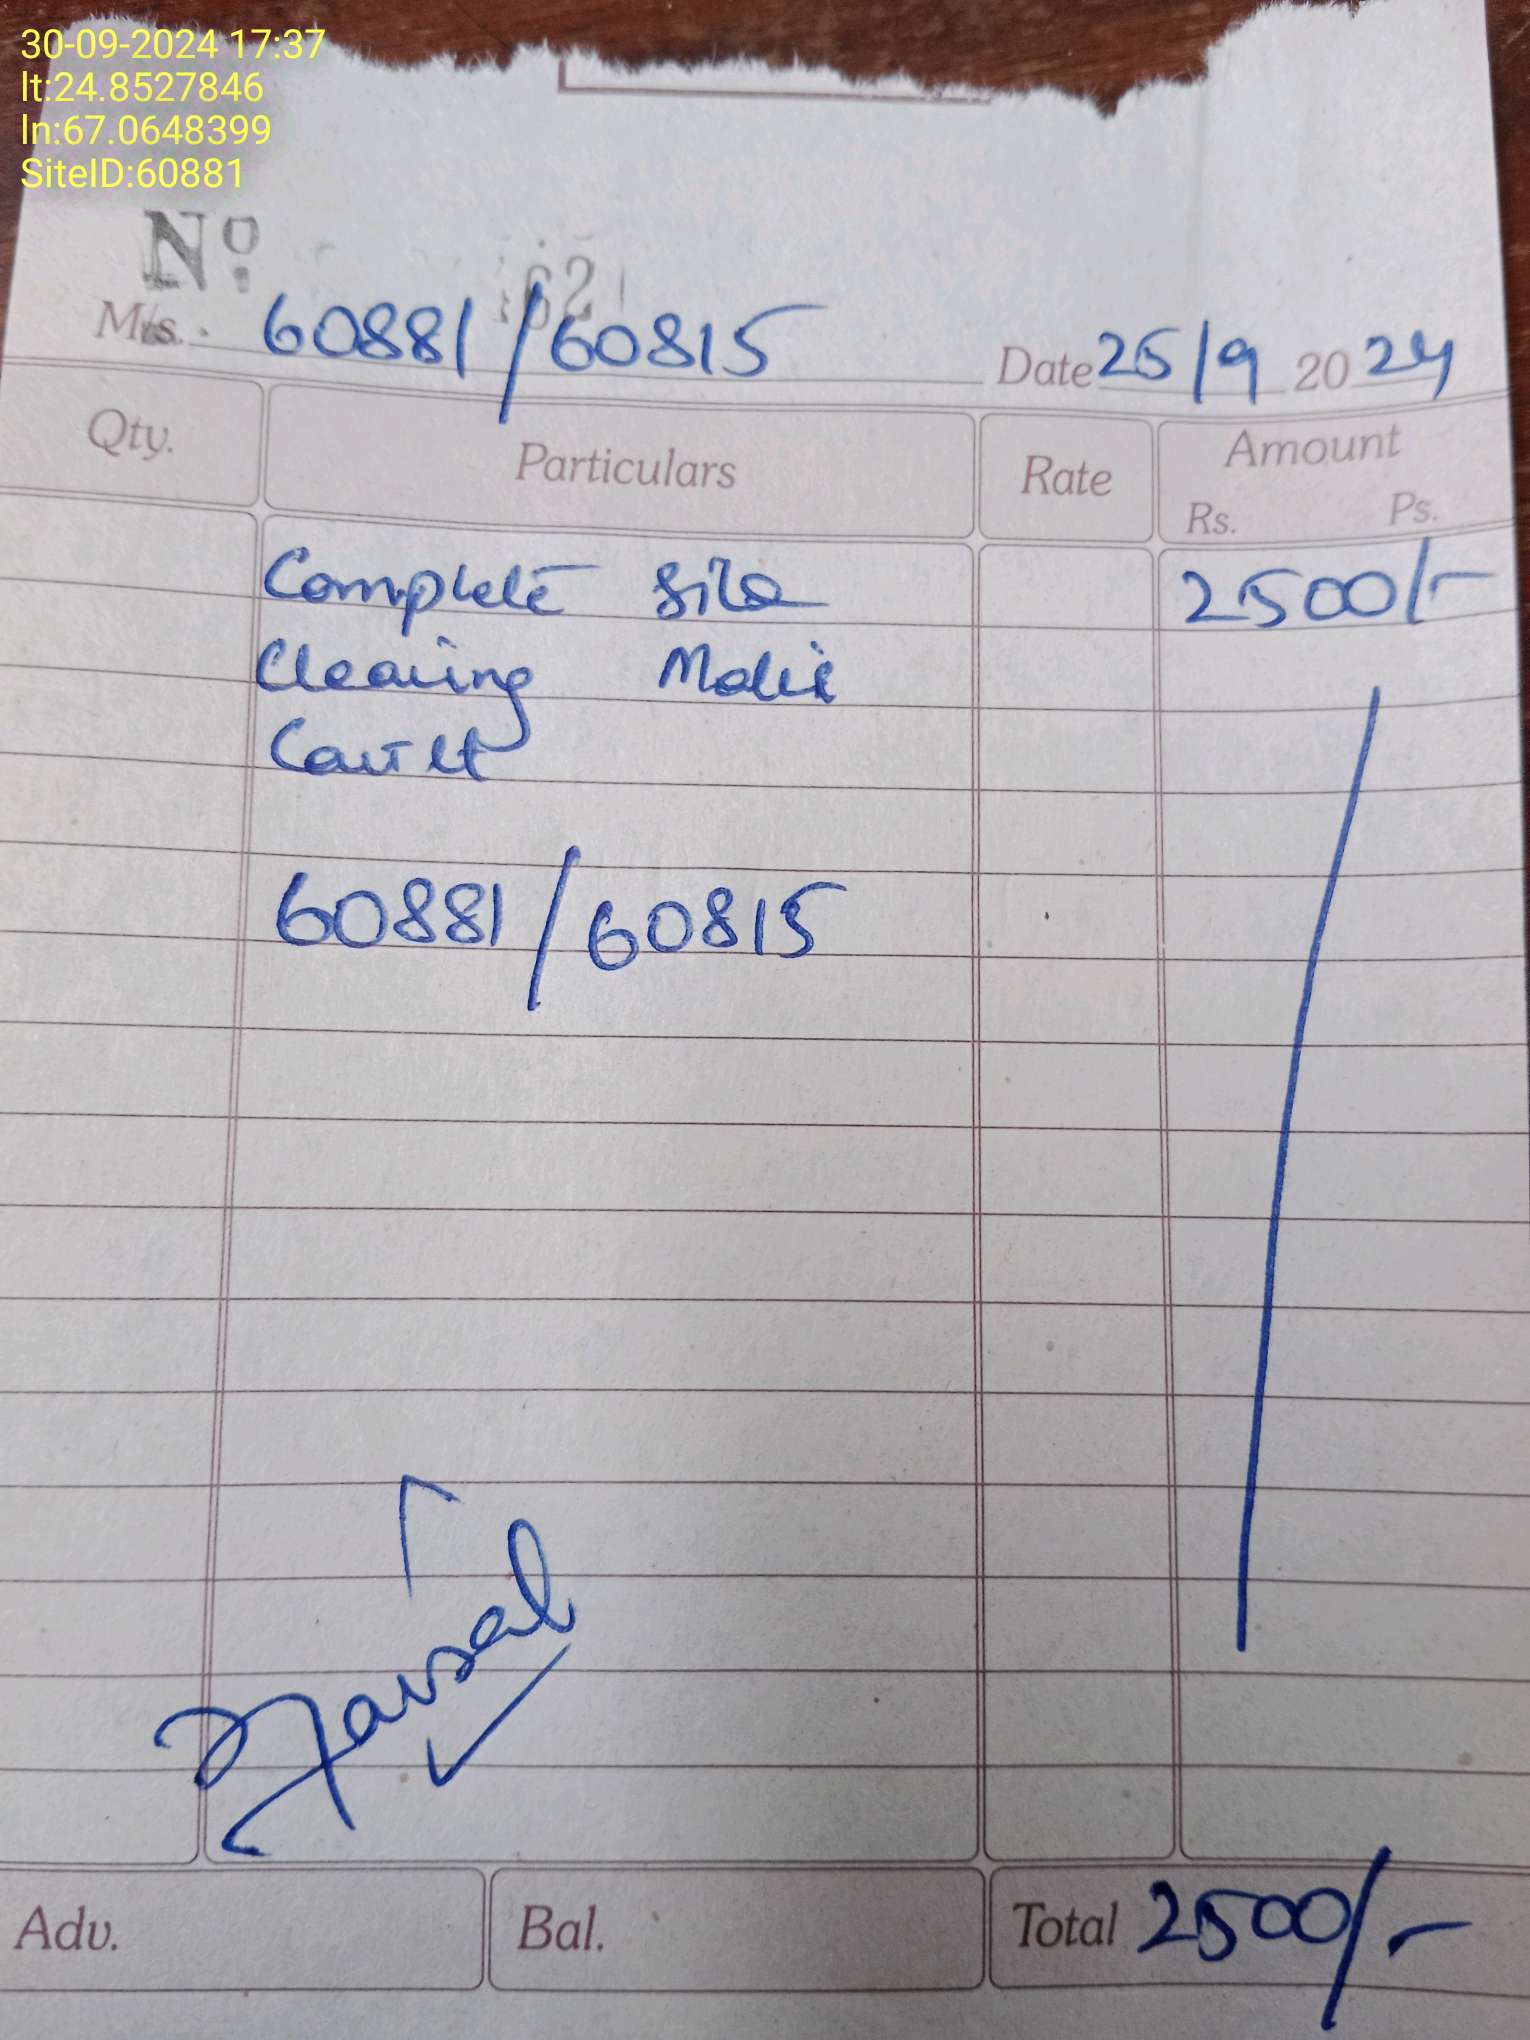 30-09-2024 17:37
lt:24.8527846
ln:67.0648399
SiteID:60881
Nº 62
M/s. 60881/60815 Date 25/9 2024
Qty. Particulars Rate Amount
Rs. Ps.
Complete Site 2500/-
Cleaning
60881/60815
Faisal
Adv. Bal. Total 2500/-